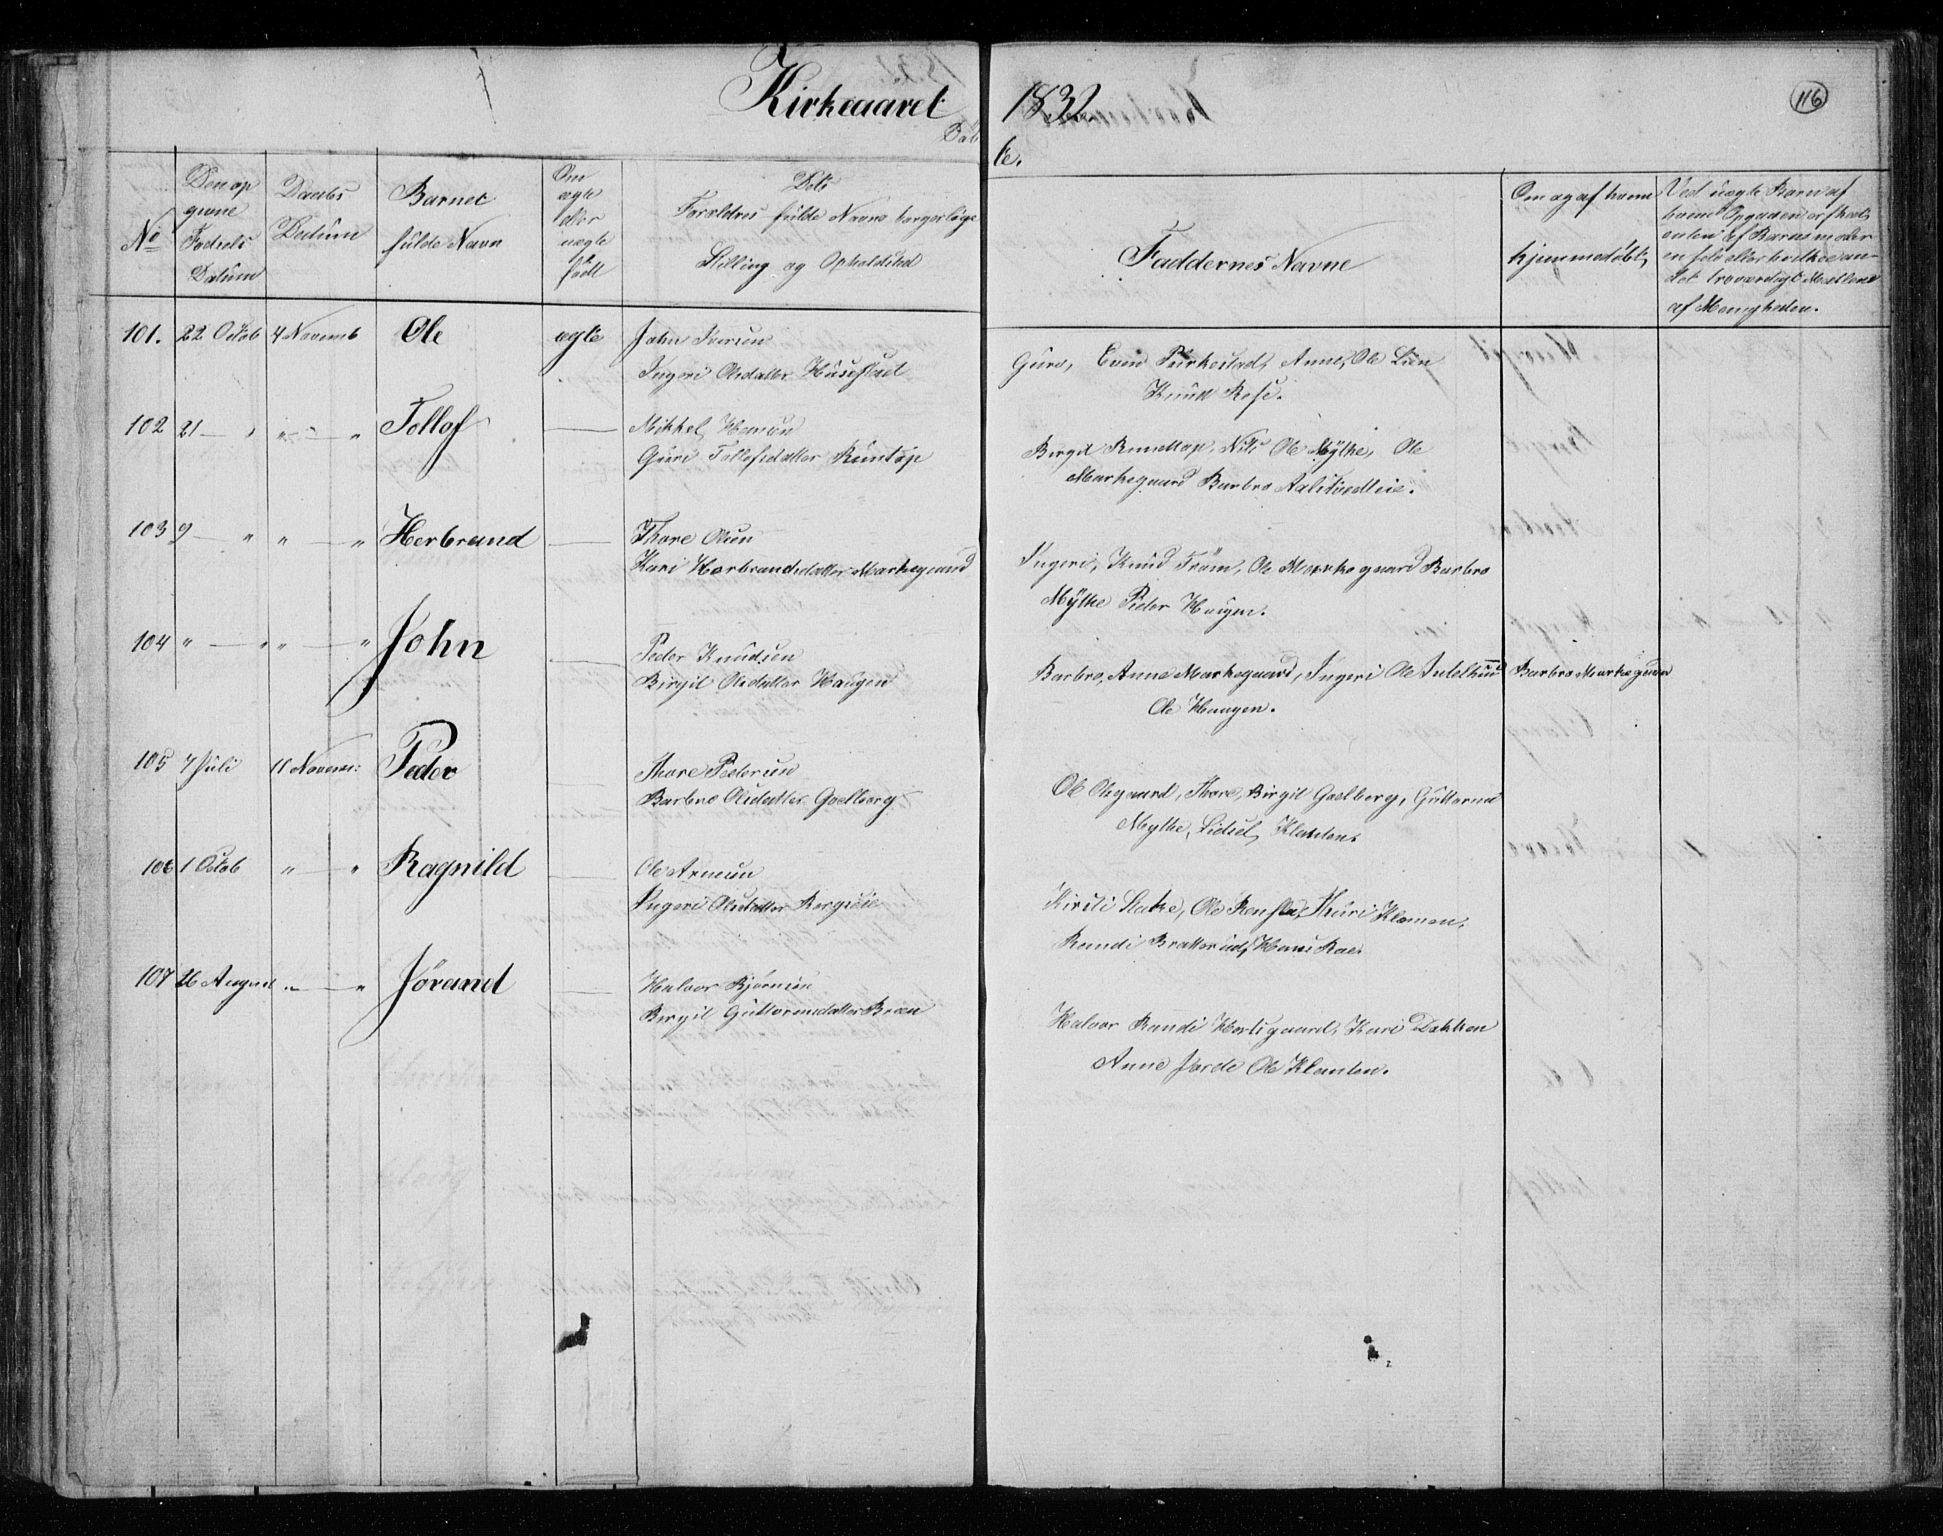 Kirkeaaret 1832.
116
Døbte.
No
Den op
givne
Fødsels
Datum
Daabs
Datum
Barnet
fulde Navn
Om
ægte
eller
uægte
født
Dets
Forældres fulde Navne borgerlige
Stilling og Opholdsted
Faddernes Navne
Om og af hvem
hjemmedøbt
Ved uægte Barn af
hvem Opgaven er skeet,
enten af Barnemoder
en selv eller hvilke an-
det troværdigt Medlem
af Menigheden.
101. 22 Octob 4 Novemb Ole ægte John Iversen
Ingeri Olsdatter Husestad
Guro, Even Anne, Ole Lien
Knud Rose.
102 21 — " " — " Tollef — Mikkel Hansen
Guri Tollefsdatter Runtop
Birgit Nils Ole Mÿthe, Ole
Markegaard Barbro
103 9 — " " — " Herbrand — Thore Olsen
Kari Herbrandsdatter Markegaard
Ingeri, Knud Trøm, Ole Markegaard Barbro
Mÿthe Peder Haugen.
104 " — " " — " John — Peder Knudsen
Birgit Olsdatter Haugen
Barbro, Anne Markegaard, Ingeri Ole
Ole Haugen.
Barbro Markegaard
105 7 Juli 11 Novem: Peder — Thore Pedersen
Barbro Olsdatter Goelberg
Ole Thore, Birgit Goelberg, Guttorm
Mythe, Sidsel Klanten.
106 1 Octob " — " Ragnild — Ole Arnesen
Ingeri Olsdatter Bergseie
Kirsti Ole Thuri Klemen,
Randi Bratterud, Hans Rae
107 26 August " — " Jørand — Halvor Bjørnsen
Birgit Guttormsdatter Bræn
Halvor Randi Kari Dokken
Anne Jorde Ole Klanten.